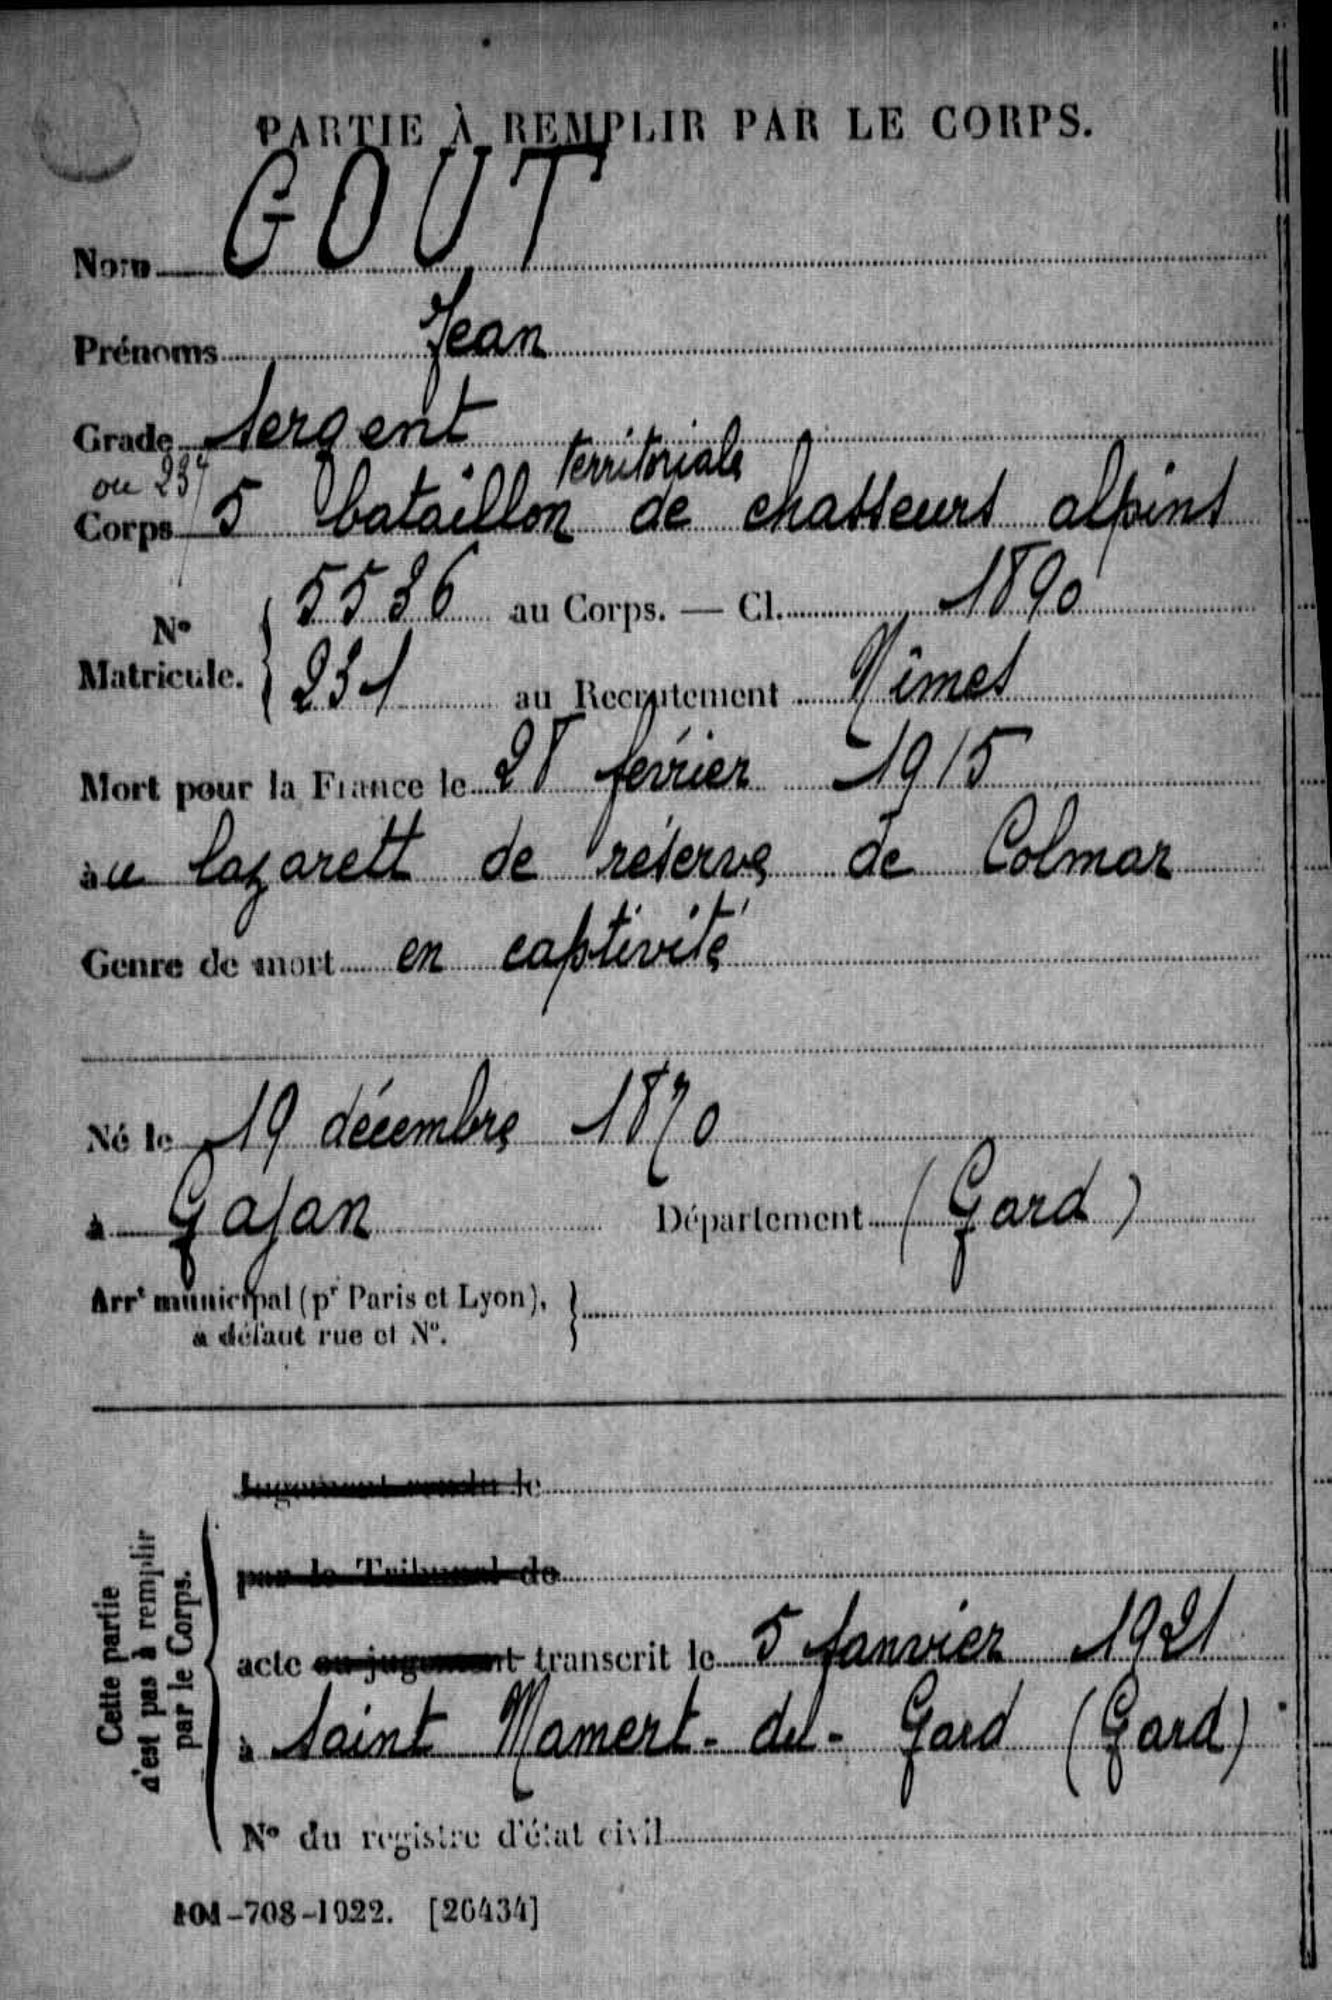 PARTIE À REMPLIR PAR LE CORPS.
Nom GOUT
Prénoms Jean
Grade Sergent
ou 23e
territoriale
Corps 5 bataillon de chasseurs alpins
N° Matricule. 5536 au Corps. — Cl. 1890
231 au Recrutement Nîmes
Mort pour la France le 28 février 1915
au lazarett de réserve de Colmar
Genre de mort en captivité
Né le 19 décembre 1870
à Gajan Département (Gard)
Arrt municipal (pr Paris et Lyon),
à défaut rue et N°.
Cette partie
n'est pas à remplir
par le Corps.
Jugement rendu le
par le Tribunal de
acte ou jugement transcrit le 5 Janvier 1921
à Saint Mamert-du-Gard (Gard)
N° du registre d'état civil
101-708-1922. [26434]